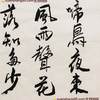 啼鳥夜来
風雨聲花
落知多少